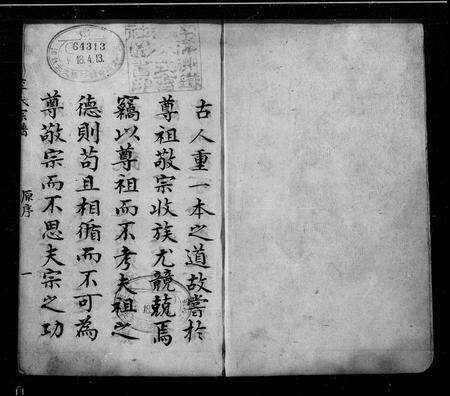 古人重一本之道故嘗於
尊祖敬宗收族尤競競焉
竊以尊祖而不考夫祖之
德則苟且相循而不可為
尊敬宗而不思夫宗之功
原序
一
64313
18.4.13.